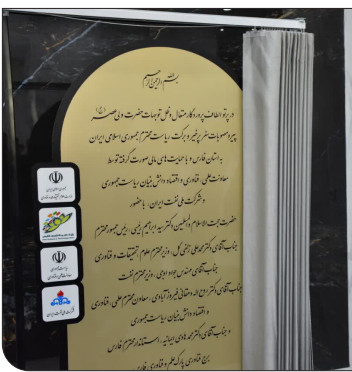 بسم الله الرحمن الرحیم
در پرتو الطاف پروردگار متعال و ظل توجهات حضرت ولی عصر (عج)
پیرو مصوبات سفر پرخیر و برکت ریاست محترم جمهوری اسلامی ایران
به استان فارس و با حمایت های مالی صورت گرفته توسط
معاونت علمی، فناوری و اقتصاد دانش بنیان ریاست جمهوری
و شرکت ملی نفت ایران، با حضور
حضرت حجت الاسلام و المسلمین دکتر سید ابراهیم رئیسی، رئیس جمهور محترم
جناب آقای دکتر محمد علی زلفی گل، وزیر محترم علوم، تحقیقات و فناوری
جناب آقای مهندس جواد اوجی، وزیر محترم نفت
جناب آقای دکتر روح اله دهقانی فیروزآبادی، معاون محترم علمی، فناوری
و اقتصاد دانش بنیان ریاست جمهوری
و جناب آقای دکتر محمد هادی ایمانیه، استاندار محترم فارس
برج فناوری پارک علم و فناوری فارس
شرکت ملی نفت ایران